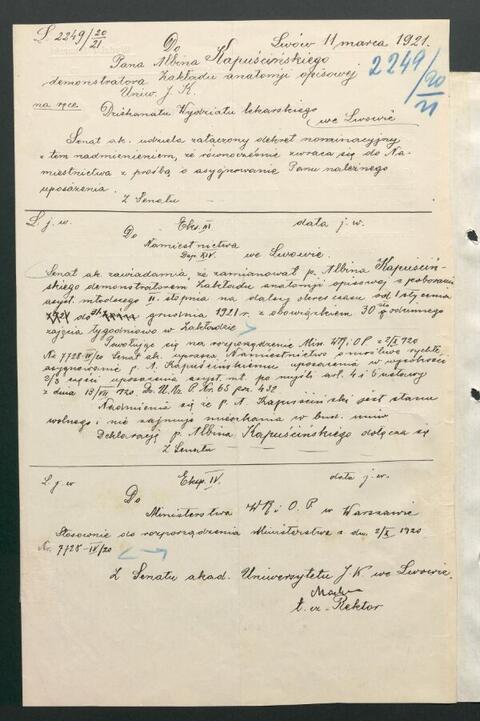 L 2249/20/21 Lwów 11 marca 1921.
Do
Pana Albina Kapuścińskiego
2249/20/21
demonstratora Zakładu anatomji opisowej
Uniw. J. K.
na ręce Dziekanatu Wydziału lekarskiego
we Lwowie
Senat ak. udziela załączony dekret nominacyjny
z tem nadmienieniem, że równocześnie zwraca się do Na-
miestnictwa z prośbą o asygnowanie Panu należnego
uposażenia.
Z Senatu
L. j. w. Eksp. III data j. w.
Do
Namiestnictwa
Dep. XIV. we Lwowie.
Senat ak. zawiadamia, że zamianował p. Albina Kapuściń-
skiego demonstratorem Zakładu anatomji opisowej z poborami
asyst. młodszego II. stopnia na dalszy okres czasu od 1 stycznia
1921 do 31 grudnia 1921 r. z obowiązkiem 30 godzinnego
zajęcia tygodniowo w Zakładzie
Powołując się na rozporządzenie Min. WR. i OP z 2/X 1920
No 7728-IV/20 Senat ak. uprasza Namiestnictwo o możliwie rychłe
asygnowanie p. A. Kapuścińskiemu uposażenia w wysokości
2/3 części uposażenia asyst. mł. po myśli art. 4 i 6 ustawy
z dnia 13/VII 1920. Dz. U. Rz. P. Nr. 65 poz. 432
Nadmienia się że p. A. Kapuściński jest stanu
wolnego i nie zajmuje mieszkania w bud. uniw.
Deklarację p. Albina Kapuścińskiego dołącza się
Z Senatu
L. j. w Eksp. IV data j. w.
Do
Ministerstwa WR. i O. P. w Warszawie
Stosownie do rozporządzenia Ministerstwa z dn. 2/X 1920
Nr. 7728-IV/20
Z Senatu akad. Uniwersytetu J K we Lwowie.
t. cz. Rektor